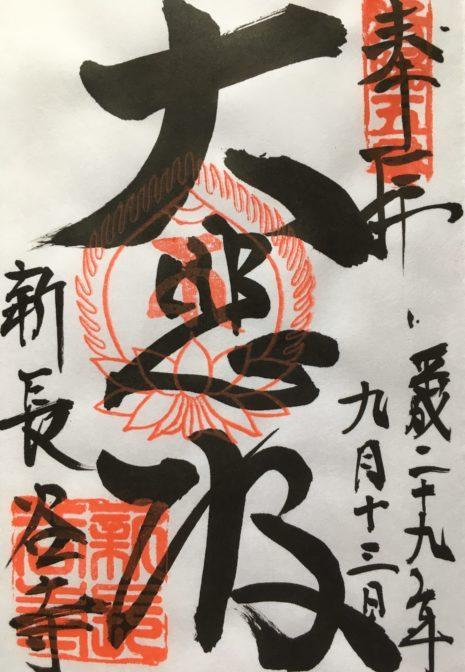 奉拝
平成二十九年
九月十三日
大悲殿
新長谷寺
新長
谷寺